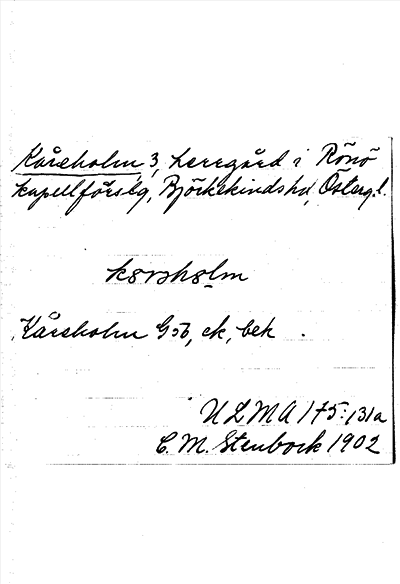 Kåreholm 3, herregård i Rönö
kapellförslg, Björkekindshd, Österg.l.
Kåreholm Gsb, ek, bek.
ULMA 175:131a
C. M. Stenbock 1902